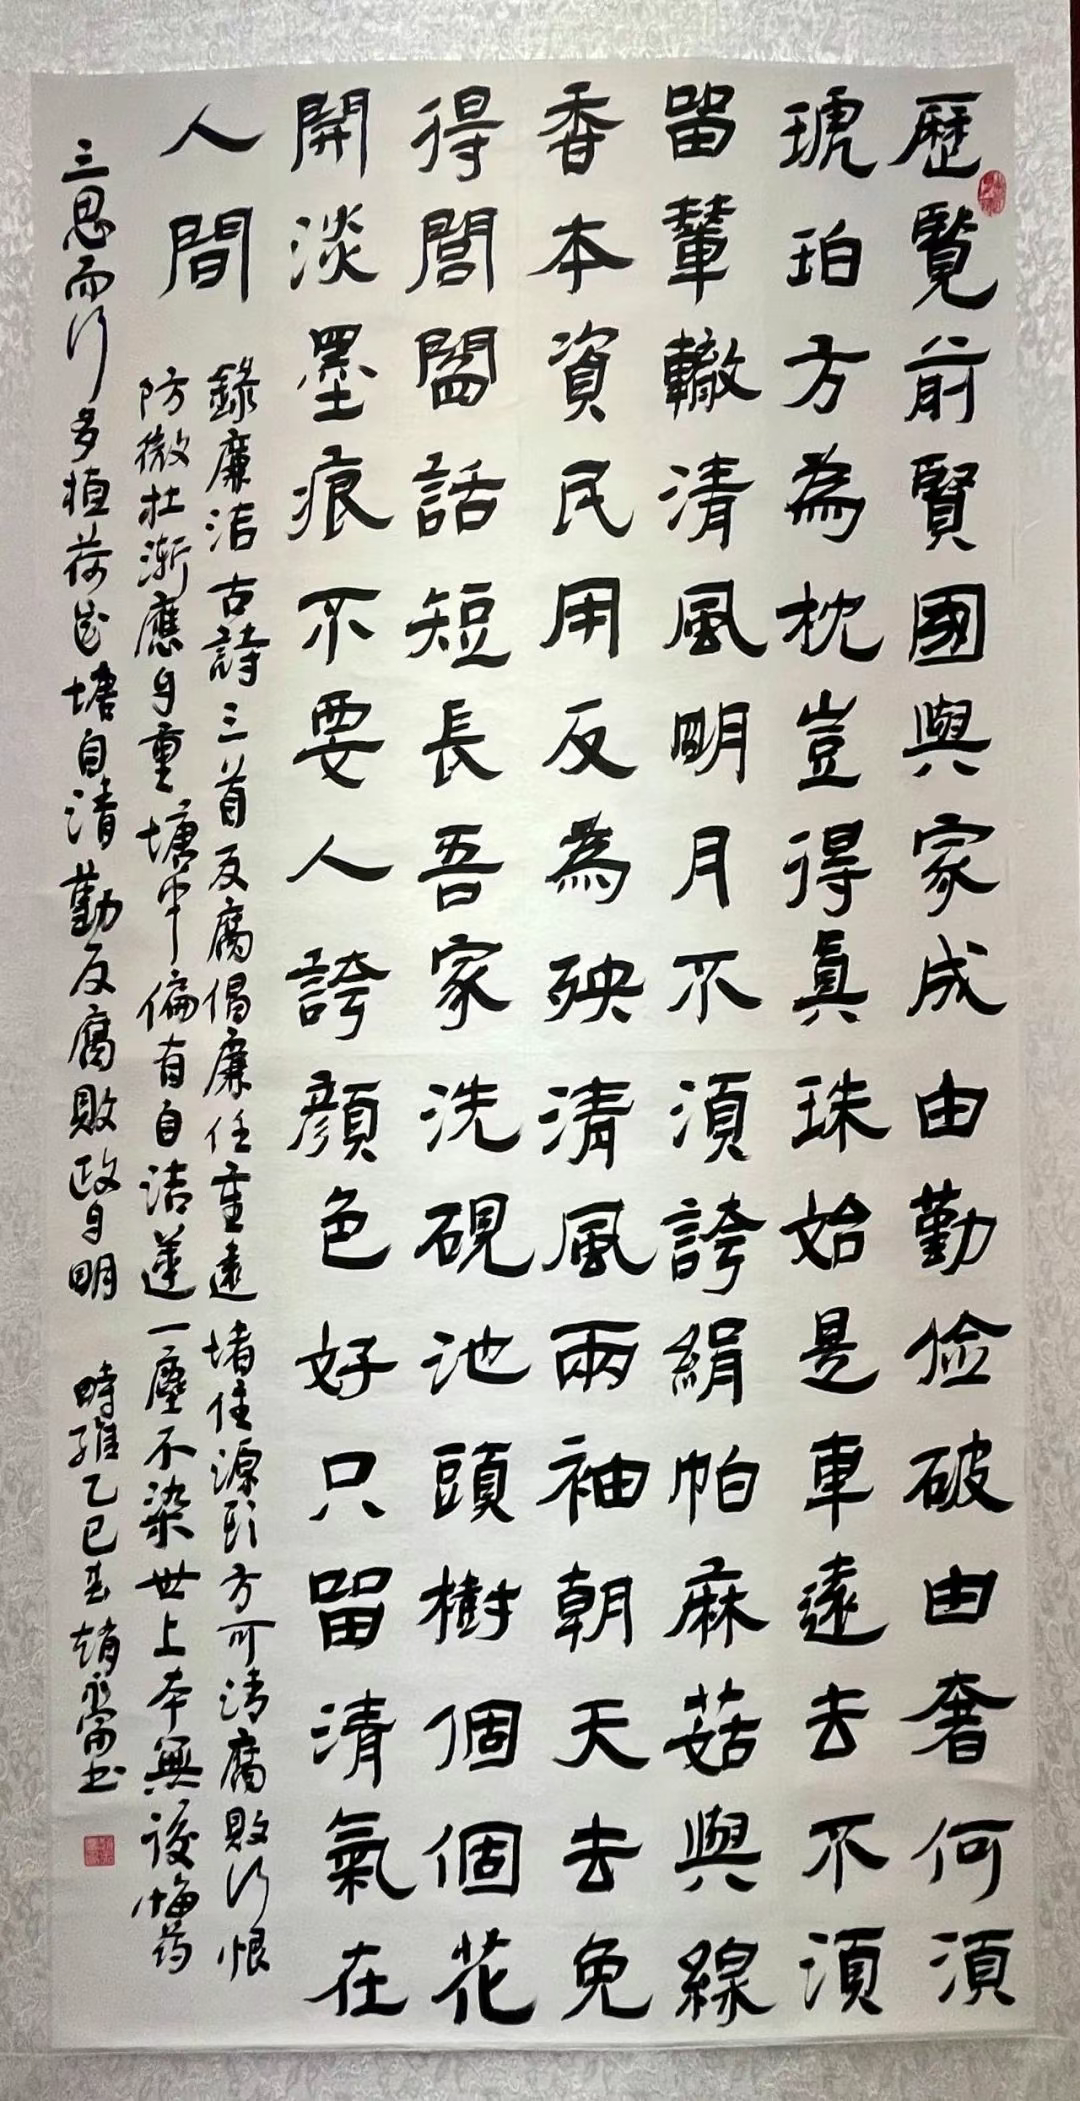 歷覽前賢國與家成由勤俭破由奢何須
琥珀方為枕豈得真珠始是車遠去不須
留輦轍清風明月不須誇絹帕麻菇與線
香本資民用反為殃清風兩袖朝天去免
得閭閻話短長吾家洗硯池頭樹個個花
開淡墨痕不要人誇顏色好只留清氣在
人間
錄廉洁古詩三首反腐倡廉任重遠堵住源头方可清腐敗行恨
防微杜漸應自重塘中偏有自洁蓮一塵不染世上本無後悔药
三思而行多植荷花塘自清勤反腐敗政自明
時維乙巳春趙永常书